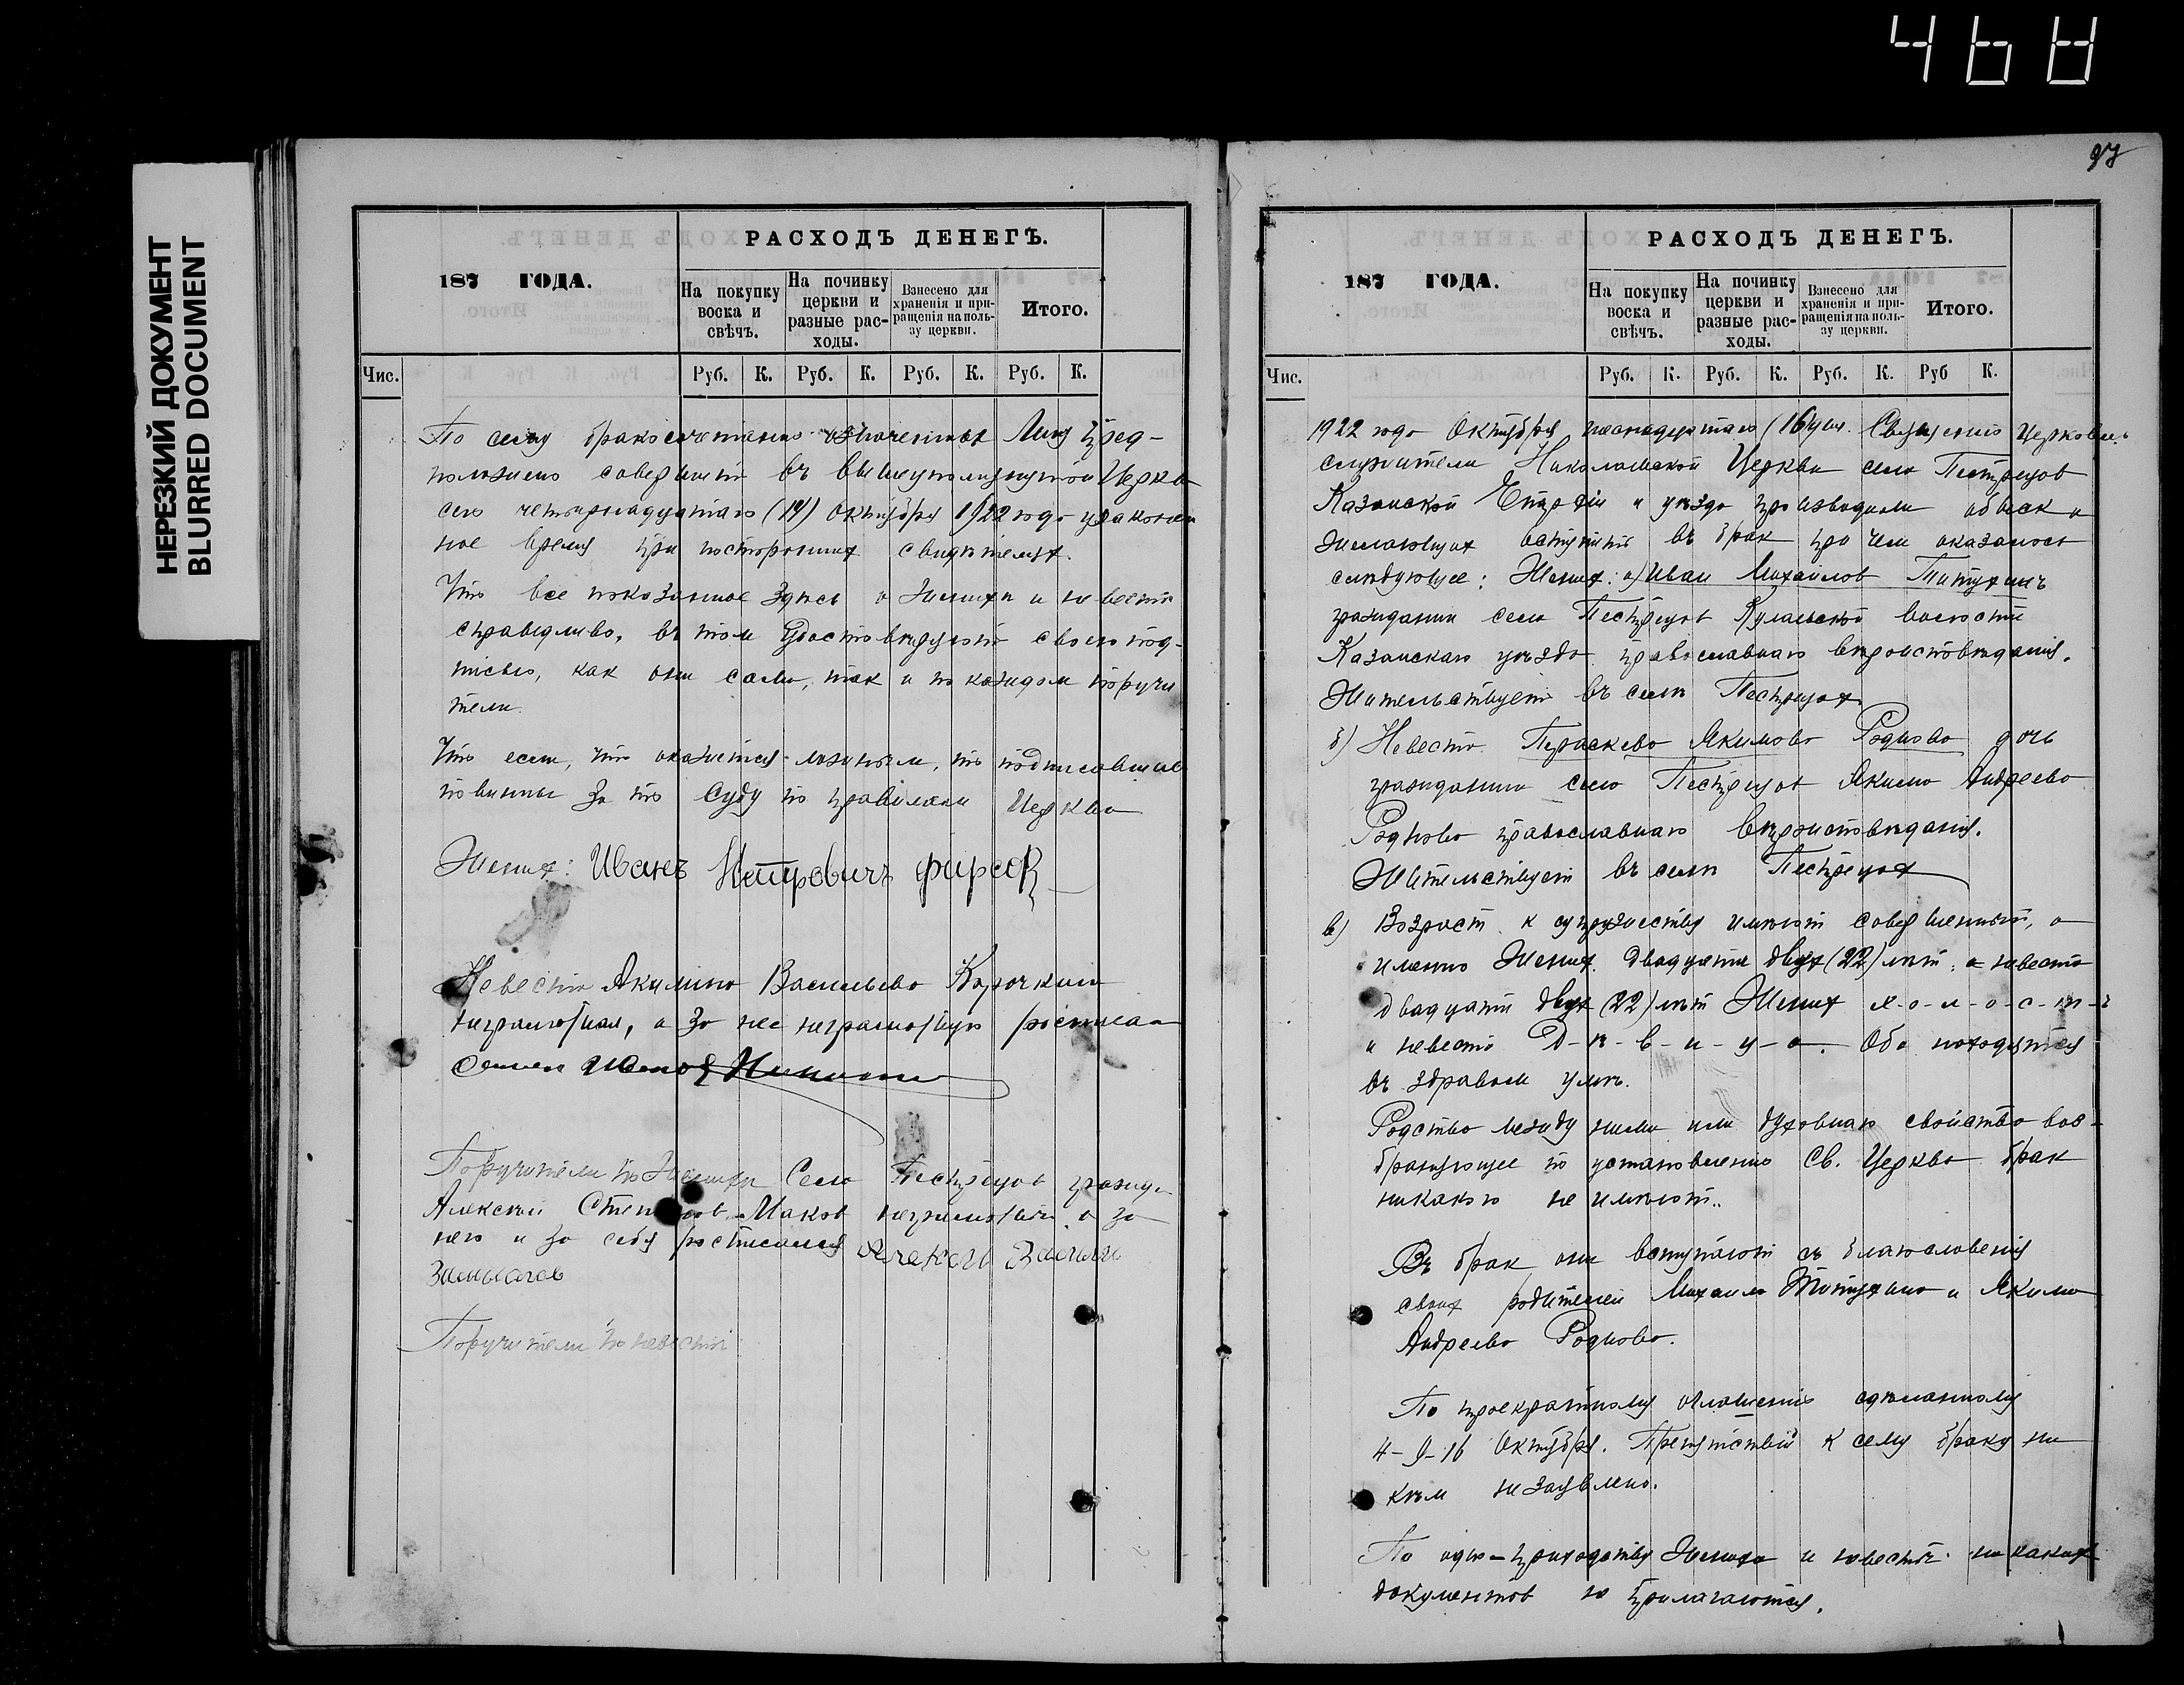 468
НЕРЕЗКИЙ ДОКУМЕНТ
BLURRED DOCUMENT
187 ГОДА.
РАСХОДЪ ДЕНЕГЪ.
На покупку воска и свѣчъ.
На починку церкви и разные расходы.
Взнесено для храненія и приращенія на пользу церкви.
Итого.
Чис.
Руб. К. Руб. К. Руб. К. Руб. К.
По сему бракосочетание означенных лиц пред-
положено совершить въ вышеупомянутой Церкви
сего четырнадцатаго (14) октября 1922 года узаконен
ное время при посторонних свидѣтелях.
Что все показанное здесь о женихе и невесте
справедливо, въ том удостовѣряют своею под-
писью, как они сами, так и по каждом поручи
тели.
Что если, что окажется ложным, то подписавшие
повинны за то суду по правилам Церкви
Жених: Иванъ Петровичъ Фирсов
Невеста Акилина Васильева Корочкина
неграмотная, а за нее неграмотную росписался
Семен Иванов
Поручители по женихе Села Пестрецов гражд.
Алексей Степанов Маков неграмотный а за
него и за себя росписался Алексей
Поручители по невесте
97
187 ГОДА.
РАСХОДЪ ДЕНЕГЪ.
На покупку воска и свѣчъ.
На починку церкви и разные расходы.
Взнесено для храненія и приращенія на пользу церкви.
Итого.
Чис.
Руб. К. Руб. К. Руб. К. Руб К.
1922 года Октября шестнадцатаго (16) дня. Священно церковно
служители Николаевской Церкви села Пестрецов
Казанской Епархіи и уѣзда производили обыск о
желающих вступить въ брак при чем оказалось
слѣдующее: Жених: а) Иван Михаилов Титухинъ
гражданин села Пестрецов Кулаевской волости
Казанскаго уѣзда православнаго вѣроисповѣданія.
Жительствует въ селѣ Пестрецах
б) Невеста Параскева Якимова Роднова дочь
гражданина села Пестрецов Якима Андреева
Роднова православнаго вѣроисповѣданія.
Жительствует въ селѣ Пестрецах
в) Возраст к супружеству имѣют совершенный, а
именно Жених двадцати двух (22) лѣт, а невеста
двадцати двух (22) лѣт Жених х-о-л-о-с-т-ъ
и невеста д-ѣ-в-и-ц-а. Оба находятся
въ здравом умѣ.
Родства между ними или духовнаго свойства воз-
браняющее по установленію Св. Церкви брак
никакого не имѣют.
Въ брак они вступают съ благословенія
своих родителей Михаила Титухина и Якима
Андреева Роднова.
По троекратному оглашенію сдѣланному
4-9-16 Октября. Препятствій к сему браку ни
кѣм не заявлено.
По одно-приходству жениха и невесты никаких
документов не прилагаются.